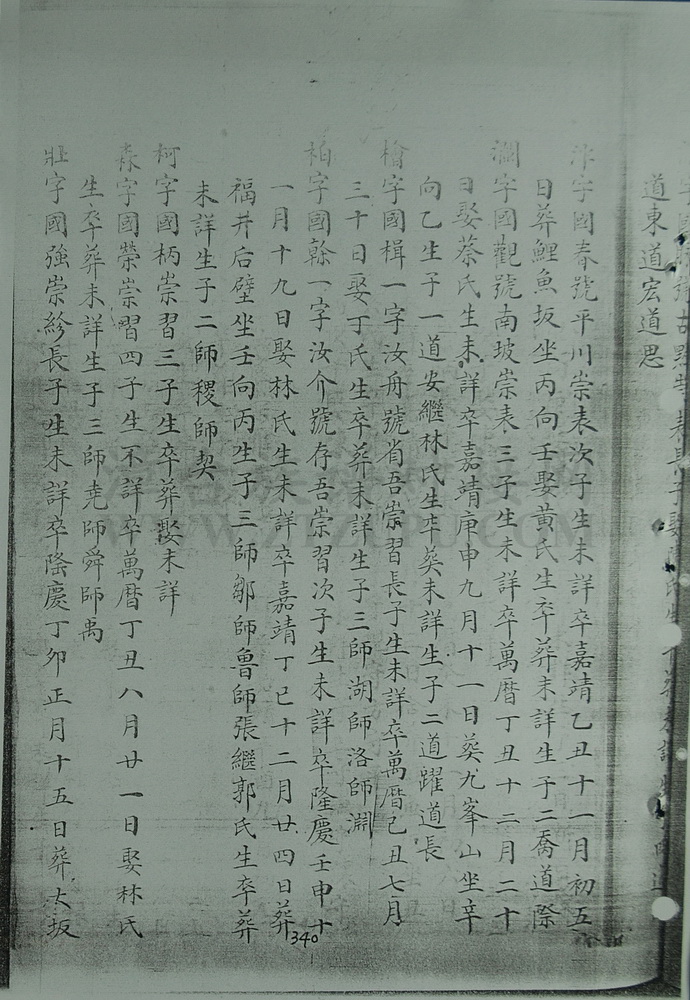 道東道宏道思
字國春號平川崇表次子生未詳卒嘉靖乙丑十一月初五
日葬鯉魚坂坐丙向壬娶黄氏生卒葬未詳生子二喬道際
字國觀號南坡崇表三子生未詳卒萬曆丁丑十二月二十
日娶蔡氏生未詳卒嘉靖庚申九月十一日葵九峯山坐辛
向乙生子一道安繼林氏生卒葵未詳生子二道躍道長
檜字國楫一字汝舟號省吾崇習長子生未詳卒萬曆己丑七月
三十日娶丁氏生卒葬未詳生子三師湖師洛師淵
柏字國翰一字汝介號存吾崇習次子生未詳卒隆慶壬申十
一月十九日娶林氏生未詳卒嘉靖丁巳十二月廿四日葬
福井后壁坐壬向丙生子三師鄒師魯師張繼郭氏生卒葬
未詳生子二師稷師契
柯字國柄崇習三子生卒葬娶未詳
森字國榮崇習四子生不詳卒萬曆丁丑八月廿一日娶林氏
生卒葬未詳生子三師堯師舜師禹
壯字國強崇紾長子生未詳卒隆慶丁卯正月十五日葬大坂
340